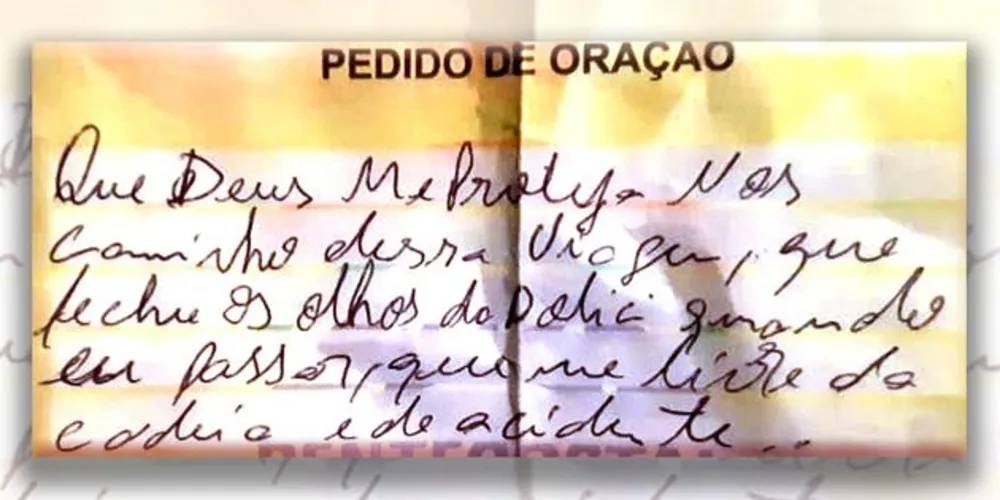 PEDIDO DE ORAÇÃO
Que Deus Me Proteja Nos
caminho dessa Viagem, que
feche os olhos da Policia quando
eu passar, que me livre da
cadeia e de acidente...
PENTECOSTAL